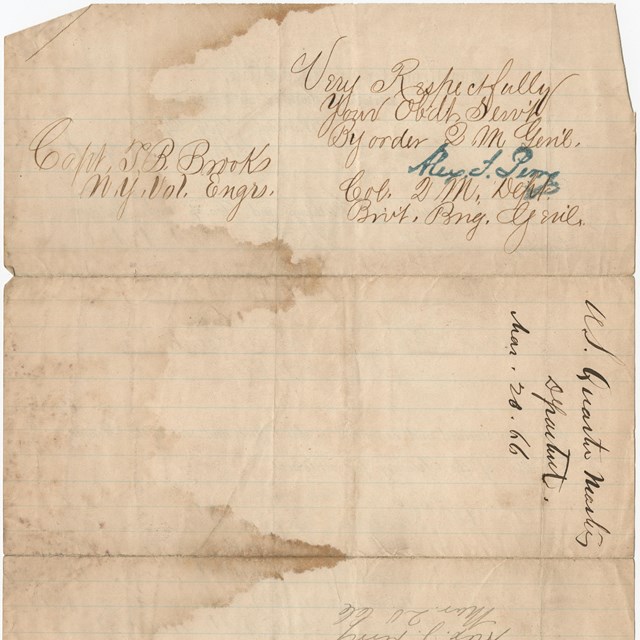 Very Respectfully
Your Obdt Servt
By order Q M Genl.
Alex. J. Perry
Col. Q M. Dept.
Brvt. Brig. Genl.
Capt. T. B. Brooks
N. Y. Vol. Engrs.
U.S. Quarter Masters
Department.
Mar. 20. 66
Mar. 20 66
Alex. J. Perry